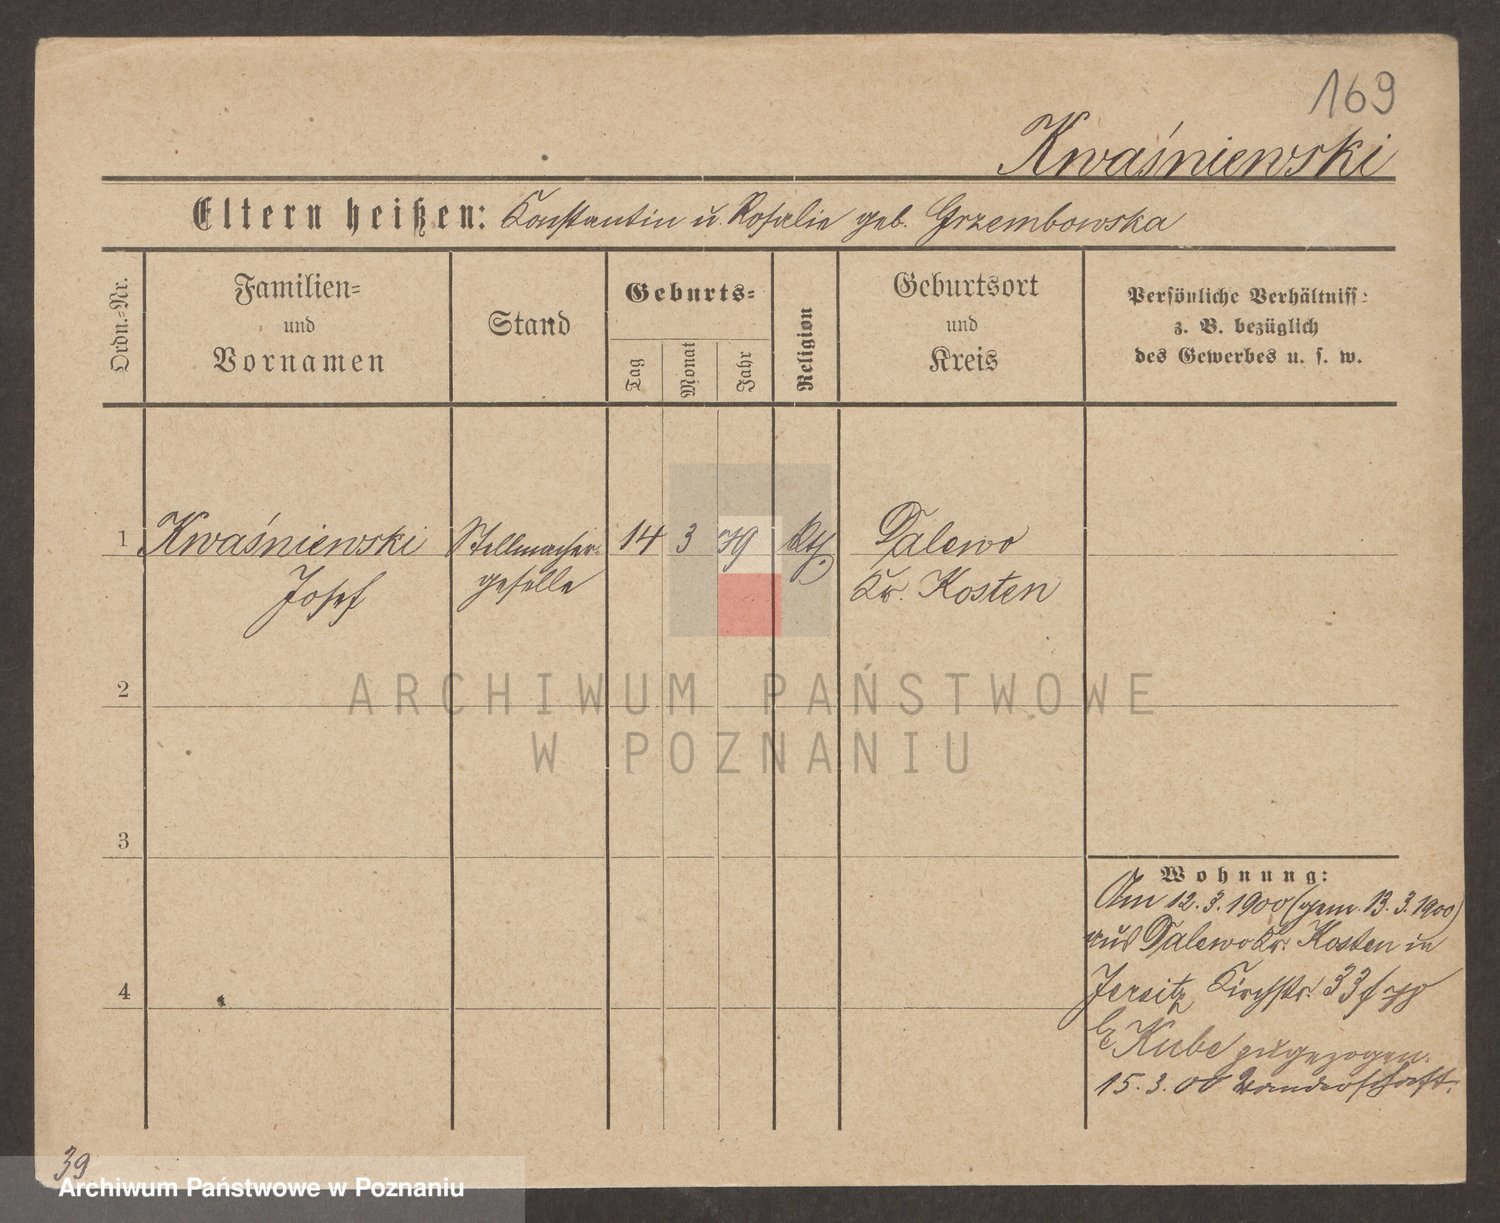 169
Kwaśniewski
Eltern heißen: Constantin u. Rosalie geb. Grzembowska
Ordn.-Nr.
Familien-
und
Vornamen
Stand
Geburts-
Tag
Monat
Jahr
Religion
Geburtsort
und
Kreis
Persönliche Verhältniss:
z. B. bezüglich
des Gewerbes u. s. w.
1 Kwaśniewski Stellmacher- 14 3 79 kth. Dalewo
Josef geselle Kr. Kosten
2
3
4
Wohnung:
Am 12.3.1900 (gem. 13.3.1900)
aus Dalewo Kr. Kosten in
Jersitz, Kirchstr. 33
Kube zugezogen.
15.3.00 Wanderschaft.
39
ARCHIWUM PAŃSTWOWE
W POZNANIU
Archiwum Państwowe w Poznaniu